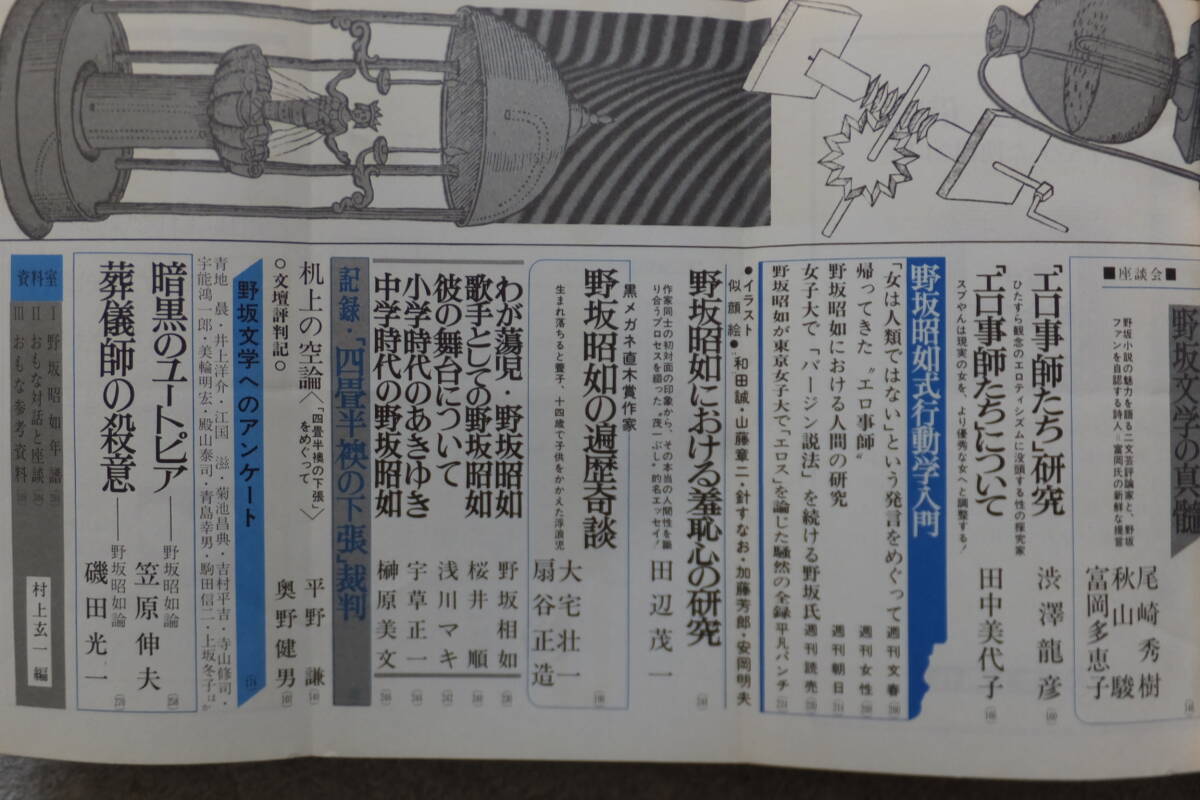 ■座談会■
野坂文学の真髄
野坂小説の魅力を語る二文芸評論家と、野坂
ファンを自認する詩人=富岡氏の新鮮な提言
尾崎秀樹
秋山駿
富岡多恵子
「エロ事師たち」研究
ひたすら観念のエロティシズムに没頭する性の探究家
渋澤龍彦
「エロ事師たち」について
スブやんは現実の女を、より優秀な女へと調整する!
田中美代子
野坂昭如式行動学入門
「女は人類ではない」という発言をめぐって
週刊文春
帰ってきた〝エロ事師〟
週刊女性
野坂昭如における人間の研究
週刊朝日
女子大で「バージン説法」を続ける野坂氏
週刊読売
野坂昭如が東京女子大で「エロス」を論じた騒然の全録
平凡パンチ
●イラスト
似顔絵●
和田誠・山藤章二・針すなお・加藤芳郎・安岡明夫
野坂昭如における羞恥心の研究
作家同士の初対面の印象から、その本当の人間性を識
り合うプロセスを綴った〝茂一ぶし〟的名エッセイ!
田辺茂一
黒メガネ直木賞作家
野坂昭如の遍歴奇談
生まれ落ちると養子、十四歳で子供をかかえた浮浪児
大宅壮一
扇谷正造
わが蕩児・野坂昭如
野坂相如
歌手としての野坂昭如
桜井順
彼の舞台について
浅川マキ
小学時代のあきゆき
宇草正一
中学時代の野坂昭如
榊原美文
記録・「四畳半襖の下張」裁判
机上の空論〈「四畳半襖の下張」をめぐって〉
平野謙
○文壇評判記○
奥野健男
野坂文学へのアンケート
青地晨・井上洋介・江国滋・菊池昌典・吉村平吉・寺山修司・
宇能鴻一郎・美輪明宏・殿山泰司・青島幸男・駒田信二・上坂冬子ほか
暗黒のユートピア――野坂昭如論
笠原伸夫
葬儀師の殺意――野坂昭如論
磯田光一
資料室
Ⅰ野坂昭如年譜
Ⅱおもな対話と座談
Ⅲおもな参考資料
村上玄一編